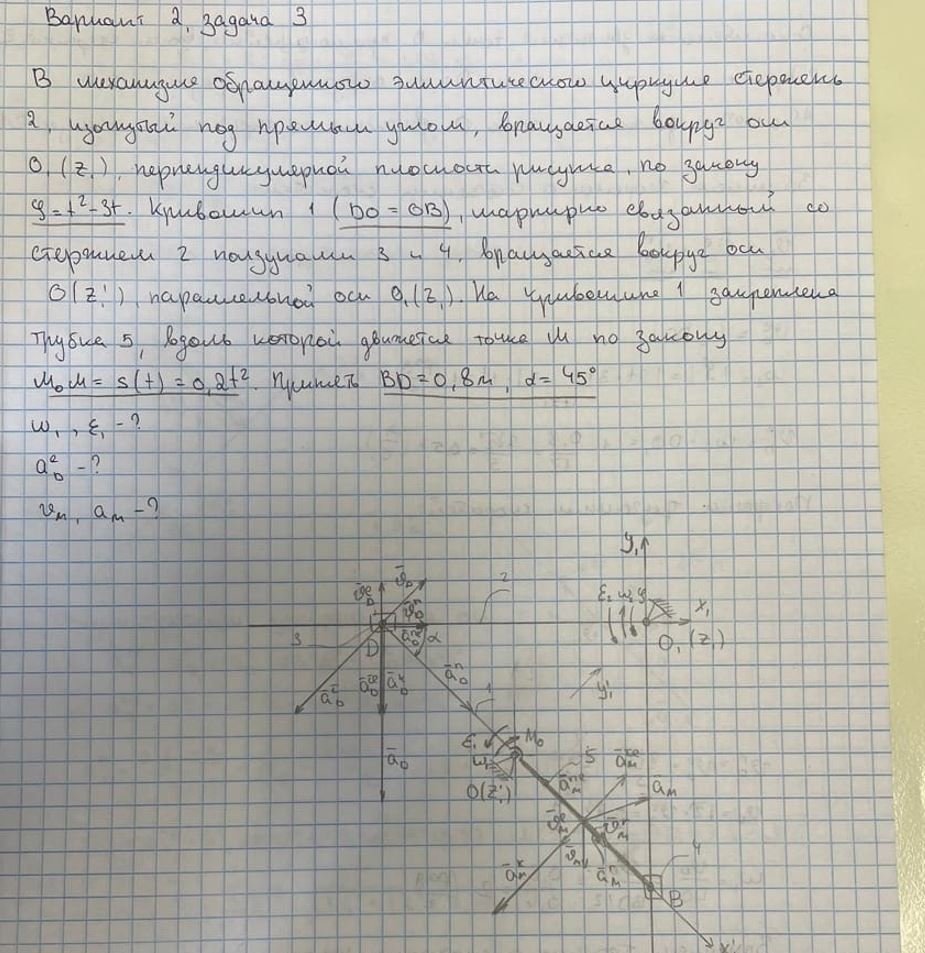 Вариант 2, задача 3
В механизме обращенного эллиптического циркуля стержень
2, изогнутый под прямым углом, вращается вокруг оси
O₁(z₁), перпендикулярной плоскости рисунка, по закону
φ=t²-3t. Кривошип 1 (DO = OB), шарнирно связанный со
стержнем 2 ползунами 3 и 4, вращается вокруг оси
O(z₁'), параллельной оси O₁(z₁). На кривошипе 1 закреплена
трубка 5, вдоль которой движется точка M по закону
M₀M = s(t) = 0,2t². Принять BD=0,8м, α=45°
ω₁, ε₁ - ?
a_D^r - ?
v_M, a_M - ?
y₁
2
x₁
3
D
α
O₁(z₁)
y₁'
1
M₀
5
O(z₁')
a_M
4
B
x₁'